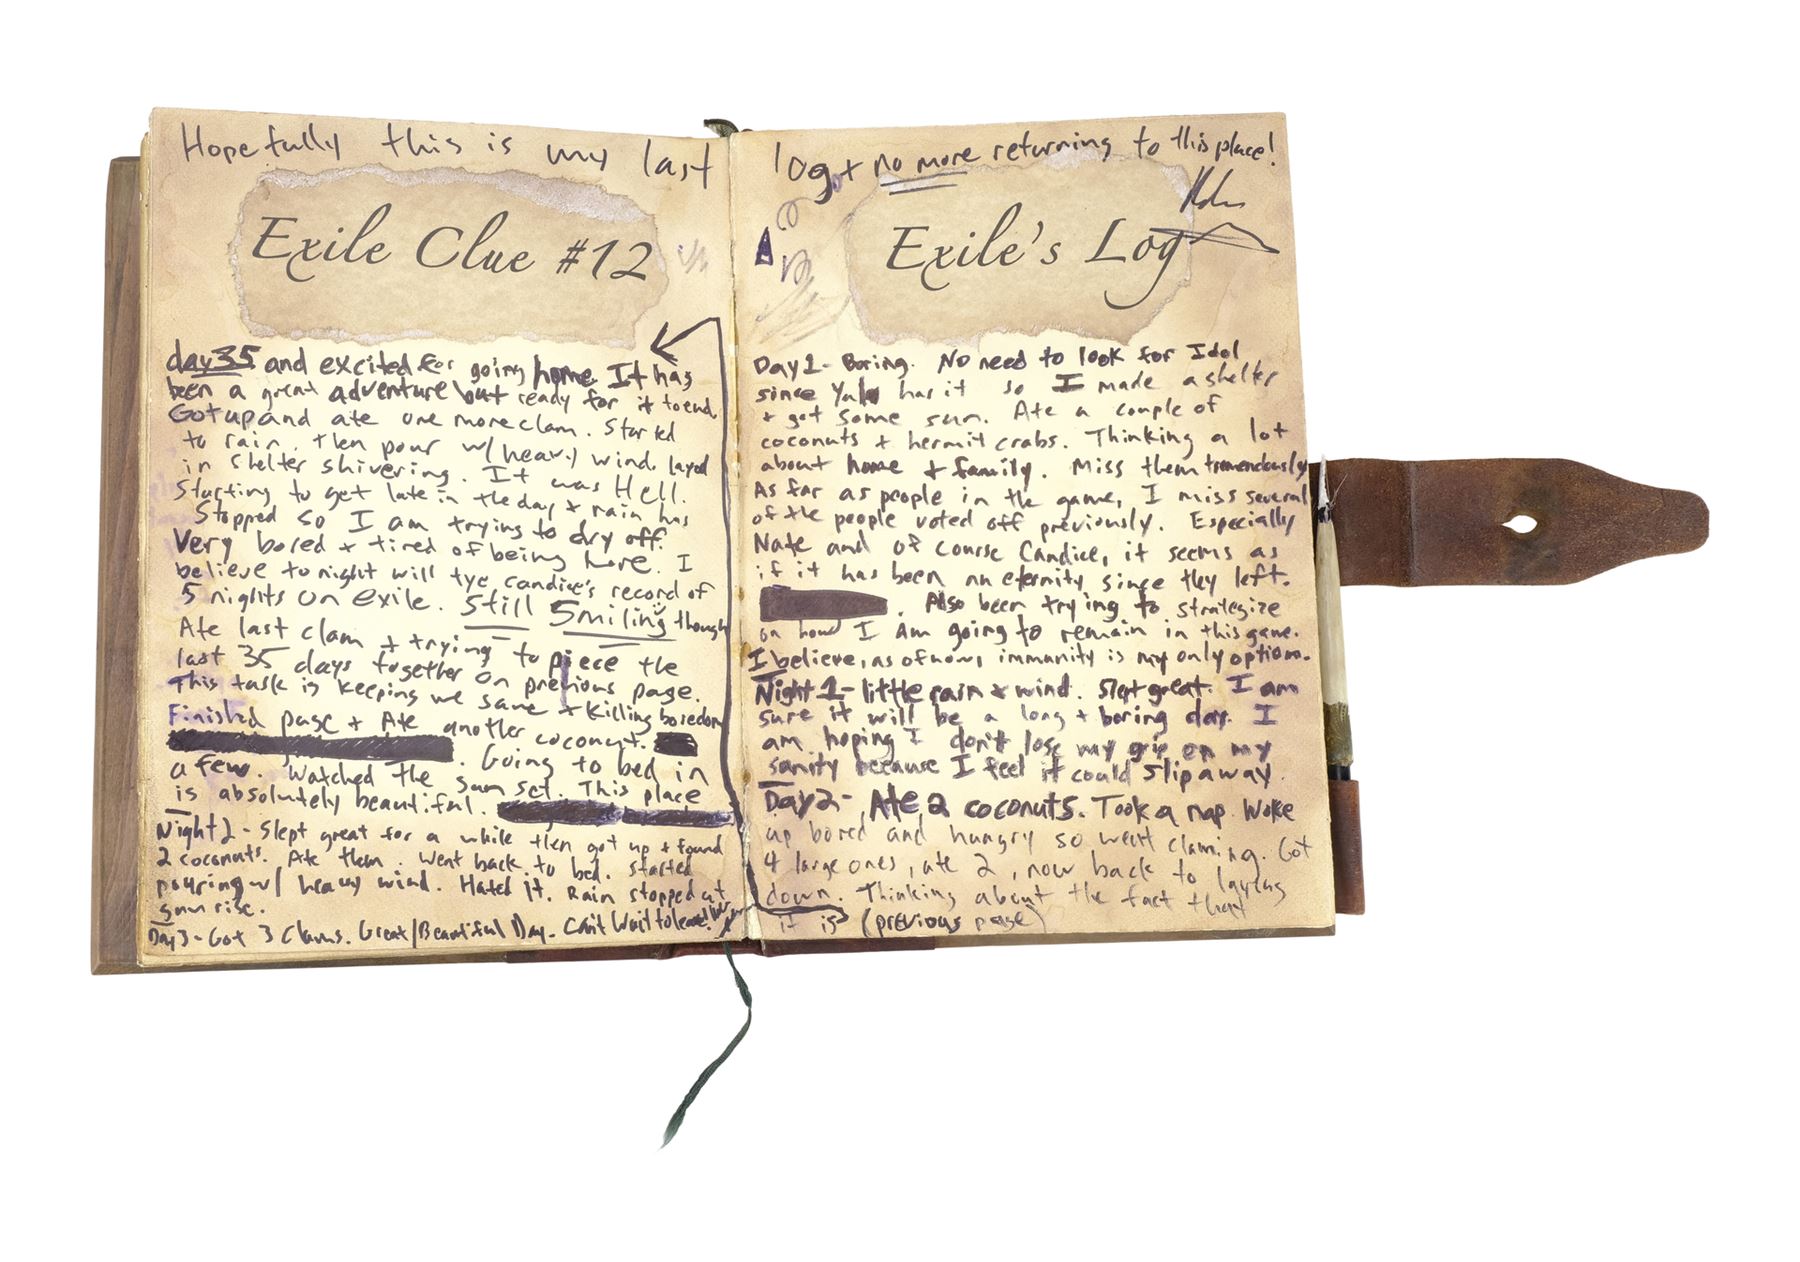 Hopefully this is my last log + no more returning to this place!
Exile Clue #12
day 35 and excited for going home It has
been a great adventure but ready for it to end.
Got up and ate one more clam. Started
to rain, then pour w/ heavy wind. layed
in shelter shivering. It was Hell.
Starting to get late in the day + rain has
stopped so I am trying to dry off.
Very bored + tired of being here. I
believe tonight will tye candice's record of
5 nights on exile. Still Smiling though
Ate last clam + trying to piece the
last 35 days together on previous page.
This task is keeping me sane + killing boredom
Finished page + Ate another coconut.
. Going to bed in
a few. Watched the sun set. This place
is absolutely beautiful.
Night 2 - Slept great for a while then got up + found
2 coconuts. Ate them. Went back to bed. Started
pouring w/ heavy wind. Hated it. Rain stopped at
sun rise.
Day 3 - Got 3 Clams. Great/Beautiful Day. Can't Wait to leave!
Exile's Log
Day 1 - Boring. No need to look for Idol
since Yul has it so I made a shelter
+ got some sun. Ate a couple of
coconuts + hermit crabs. Thinking a lot
about home + family. Miss them tremendously
As far as people in the game, I miss several
of the people voted off previously. Especially
Nate and of course Candice, it seems as
if it has been an eternity since they left.
. Also been trying to strategize
on how I am going to remain in this game.
I believe, as of now, immunity is my only option.
Night 1 - little rain & wind. Slept great. I am
sure it will be a long + boring day. I
am hoping I don't lose my grip on my
sanity because I feel it could slip away.
Day 2 - Ate 2 coconuts. Took a nap. Woke
up bored and hungry so went claming. Got
4 large ones, ate 2, now back to laying
down. Thinking about the fact that
it is (previous page)